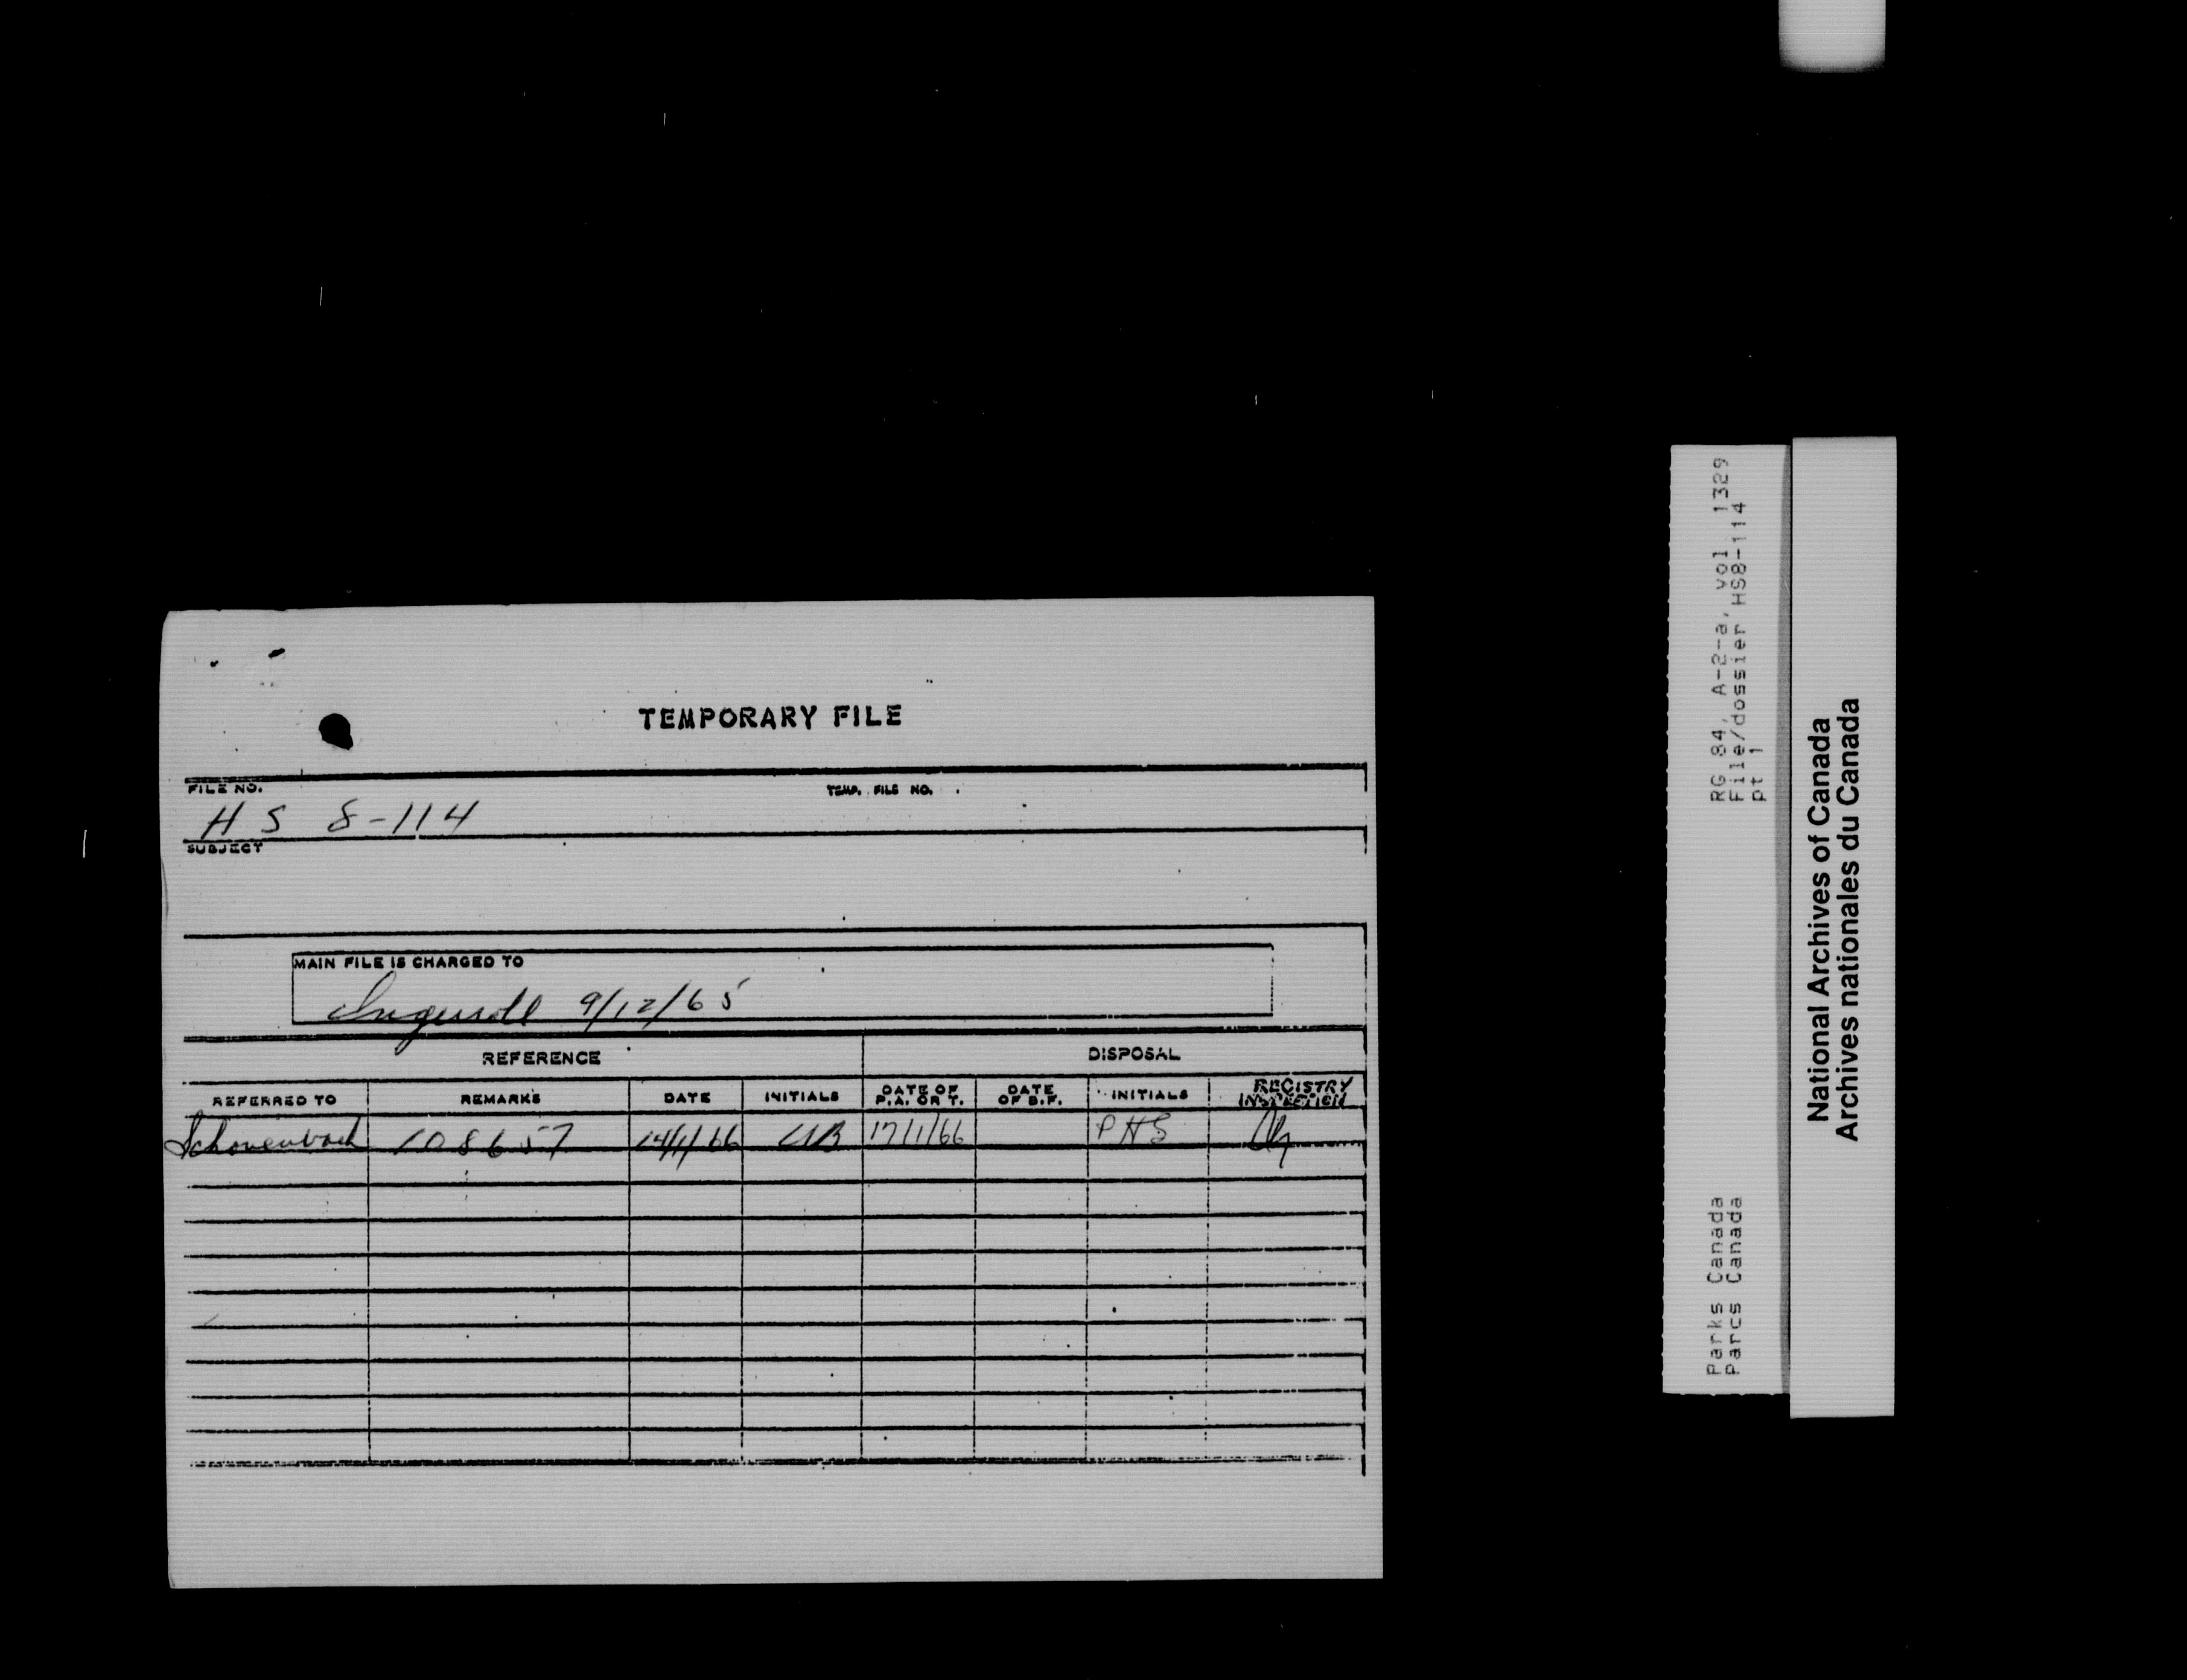 TEMPORARY FILE
FILE NO.
TEMP. FILE NO.
H S 8-114
SUBJECT
MAIN FILE IS CHARGED TO
Ingersoll 9/12/65
REFERENCE
DISPOSAL
REFERRED TO REMARKS DATE INITIALS DATE OF P.A. OR T. DATE OF B.F. INITIALS REGISTRY INSPECTION
108657 14/1/66 17/1/66 PHS
RG 84, A-2-a, vol. 1329
File/dossier HS8-114
pt 1
Parks Canada
Parcs Canada
National Archives of Canada
Archives nationales du Canada